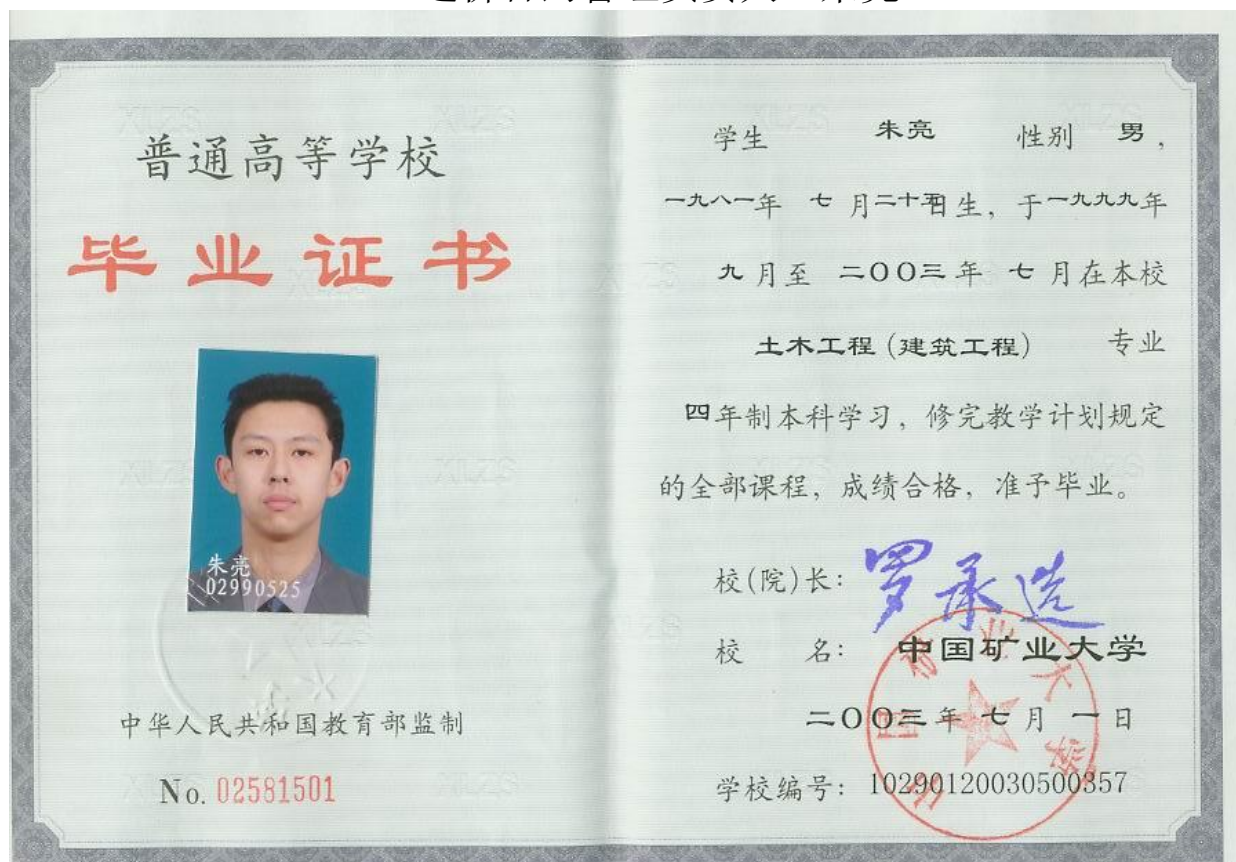 普通高等学校
毕业证书
朱亮
02990525
中华人民共和国教育部监制
No. 02581501
学生 朱亮 性别 男,
一九八一年 七 月二十五日生, 于一九九九年
九月至 二〇〇三年 七 月在本校
土木工程(建筑工程) 专业
四年制本科学习, 修完教学计划规定
的全部课程, 成绩合格, 准予毕业。
校(院)长:
校 名: 中国矿业大学
二〇〇三年 七 月 一 日
学校编号: 10290120030500357